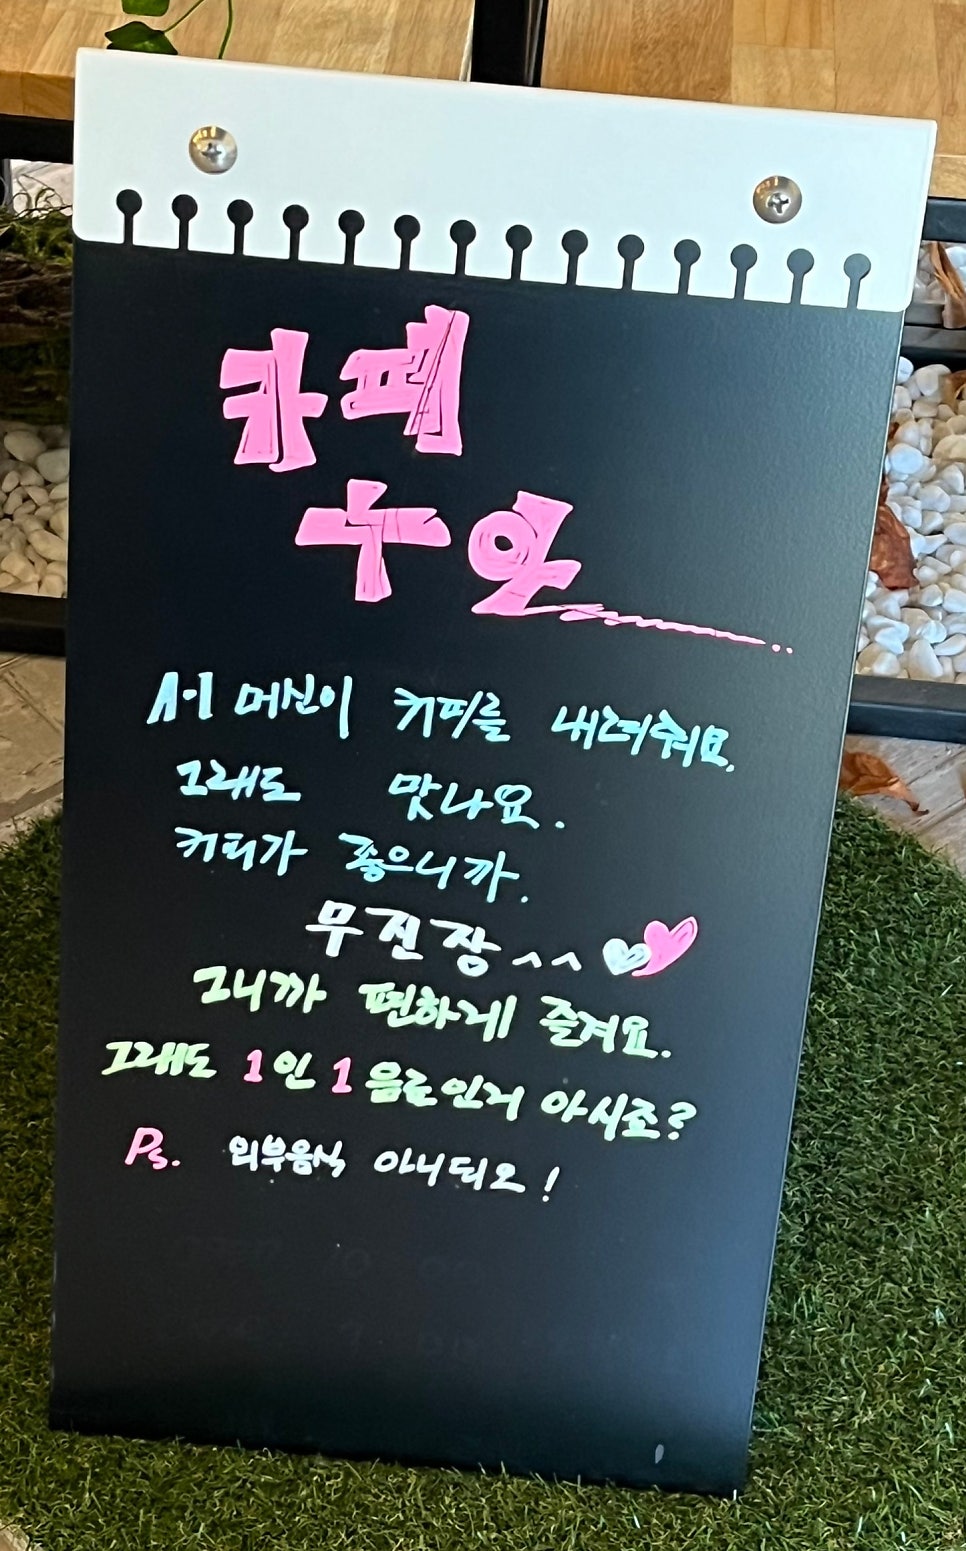 카페
수안
A·I 머신이 커피를 내려줘요.
그래도 맛나요.
커피가 좋으니까.
무진장^^
그니까 편하게 즐겨요.
그래도 1인 1음료인거 아시죠?
Ps. 외부음식 아니되오!